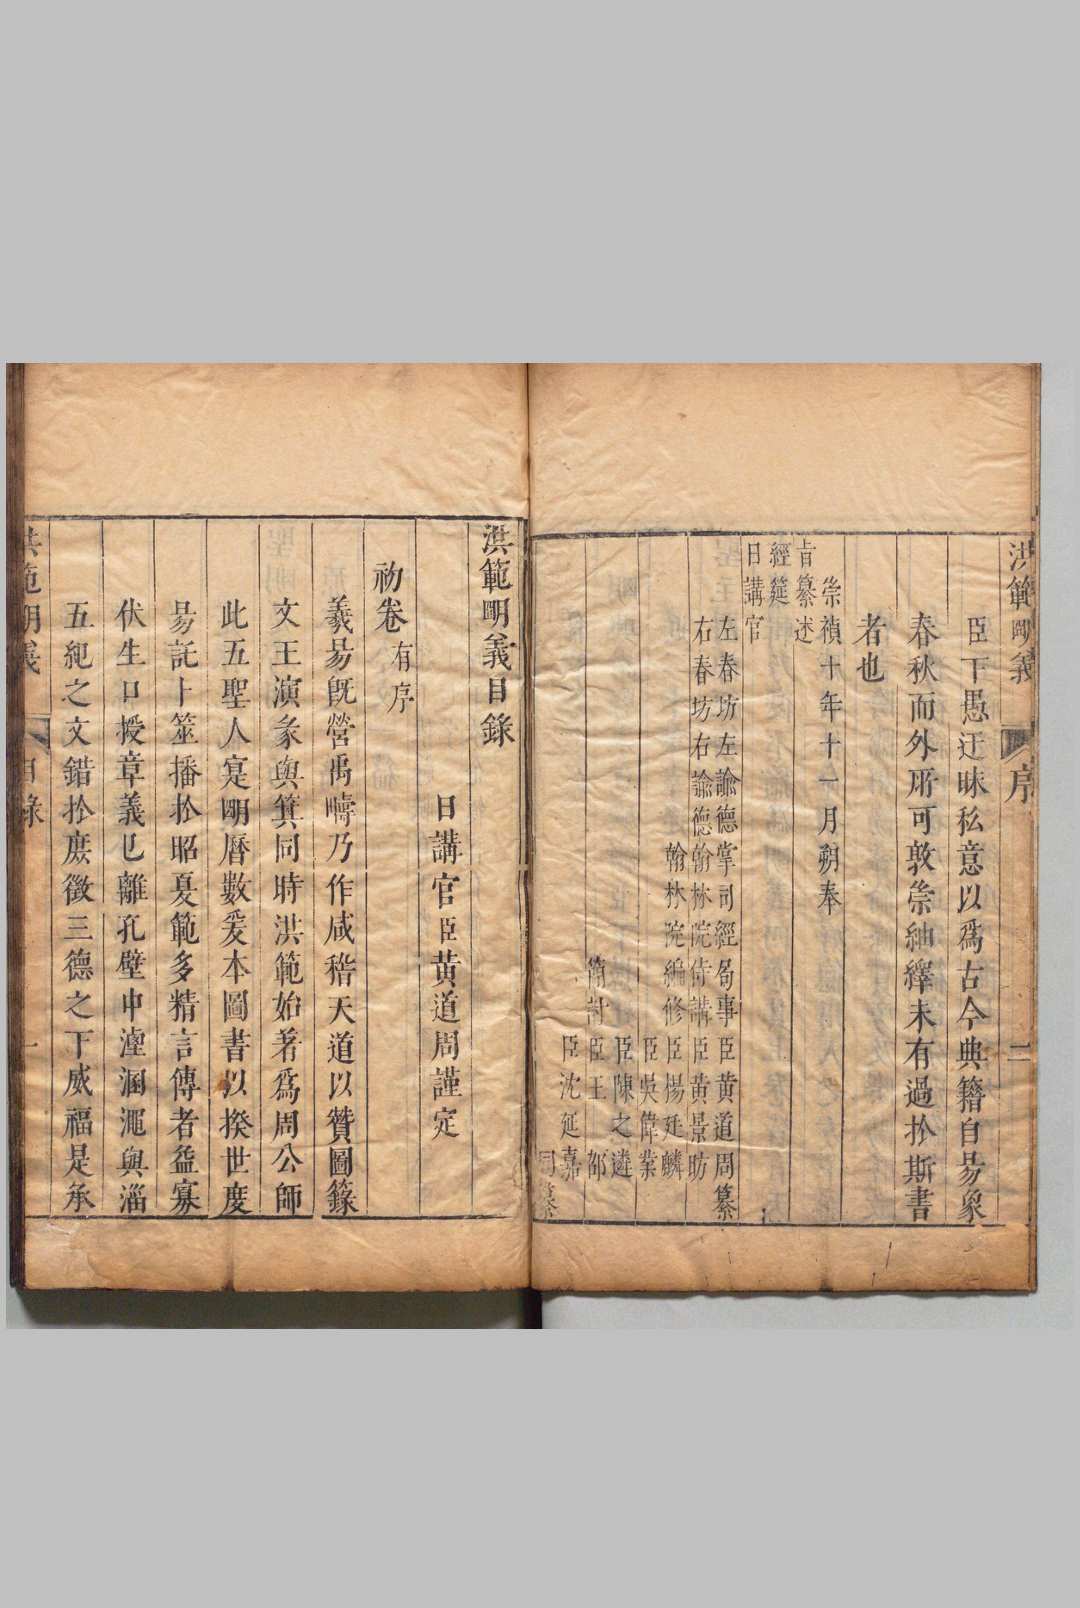 洪範明義
序
二
臣下愚迂昧私意以爲古今典籍自易象
春秋而外所可敦崇紬繹未有過於斯書
者也
崇禎十年十一月朔奉
旨纂述
經筵
日講官
左春坊左諭德掌司經局事臣黄道周纂
右春坊右諭德翰林院侍講臣黄景昉
翰林院編修臣楊廷麟
臣吳偉業
臣陳之遴
簡討臣王邵
臣沈延嘉
同纂
洪範明義目錄
日講官臣黄道周謹定
初卷有序
羲易旣營禹疇乃作咸稽天道以贊圖籙
文王演彖與箕同時洪範始著爲周公師
此五聖人寔明曆數爰本圖書以揆世度
易託卜筮播於昭夏範多精言傳者益寡
伏生口授章義已離孔壁中湮溷澠與淄
五紀之文錯於庶徵三德之下威福是承
洪範明義
目錄
一